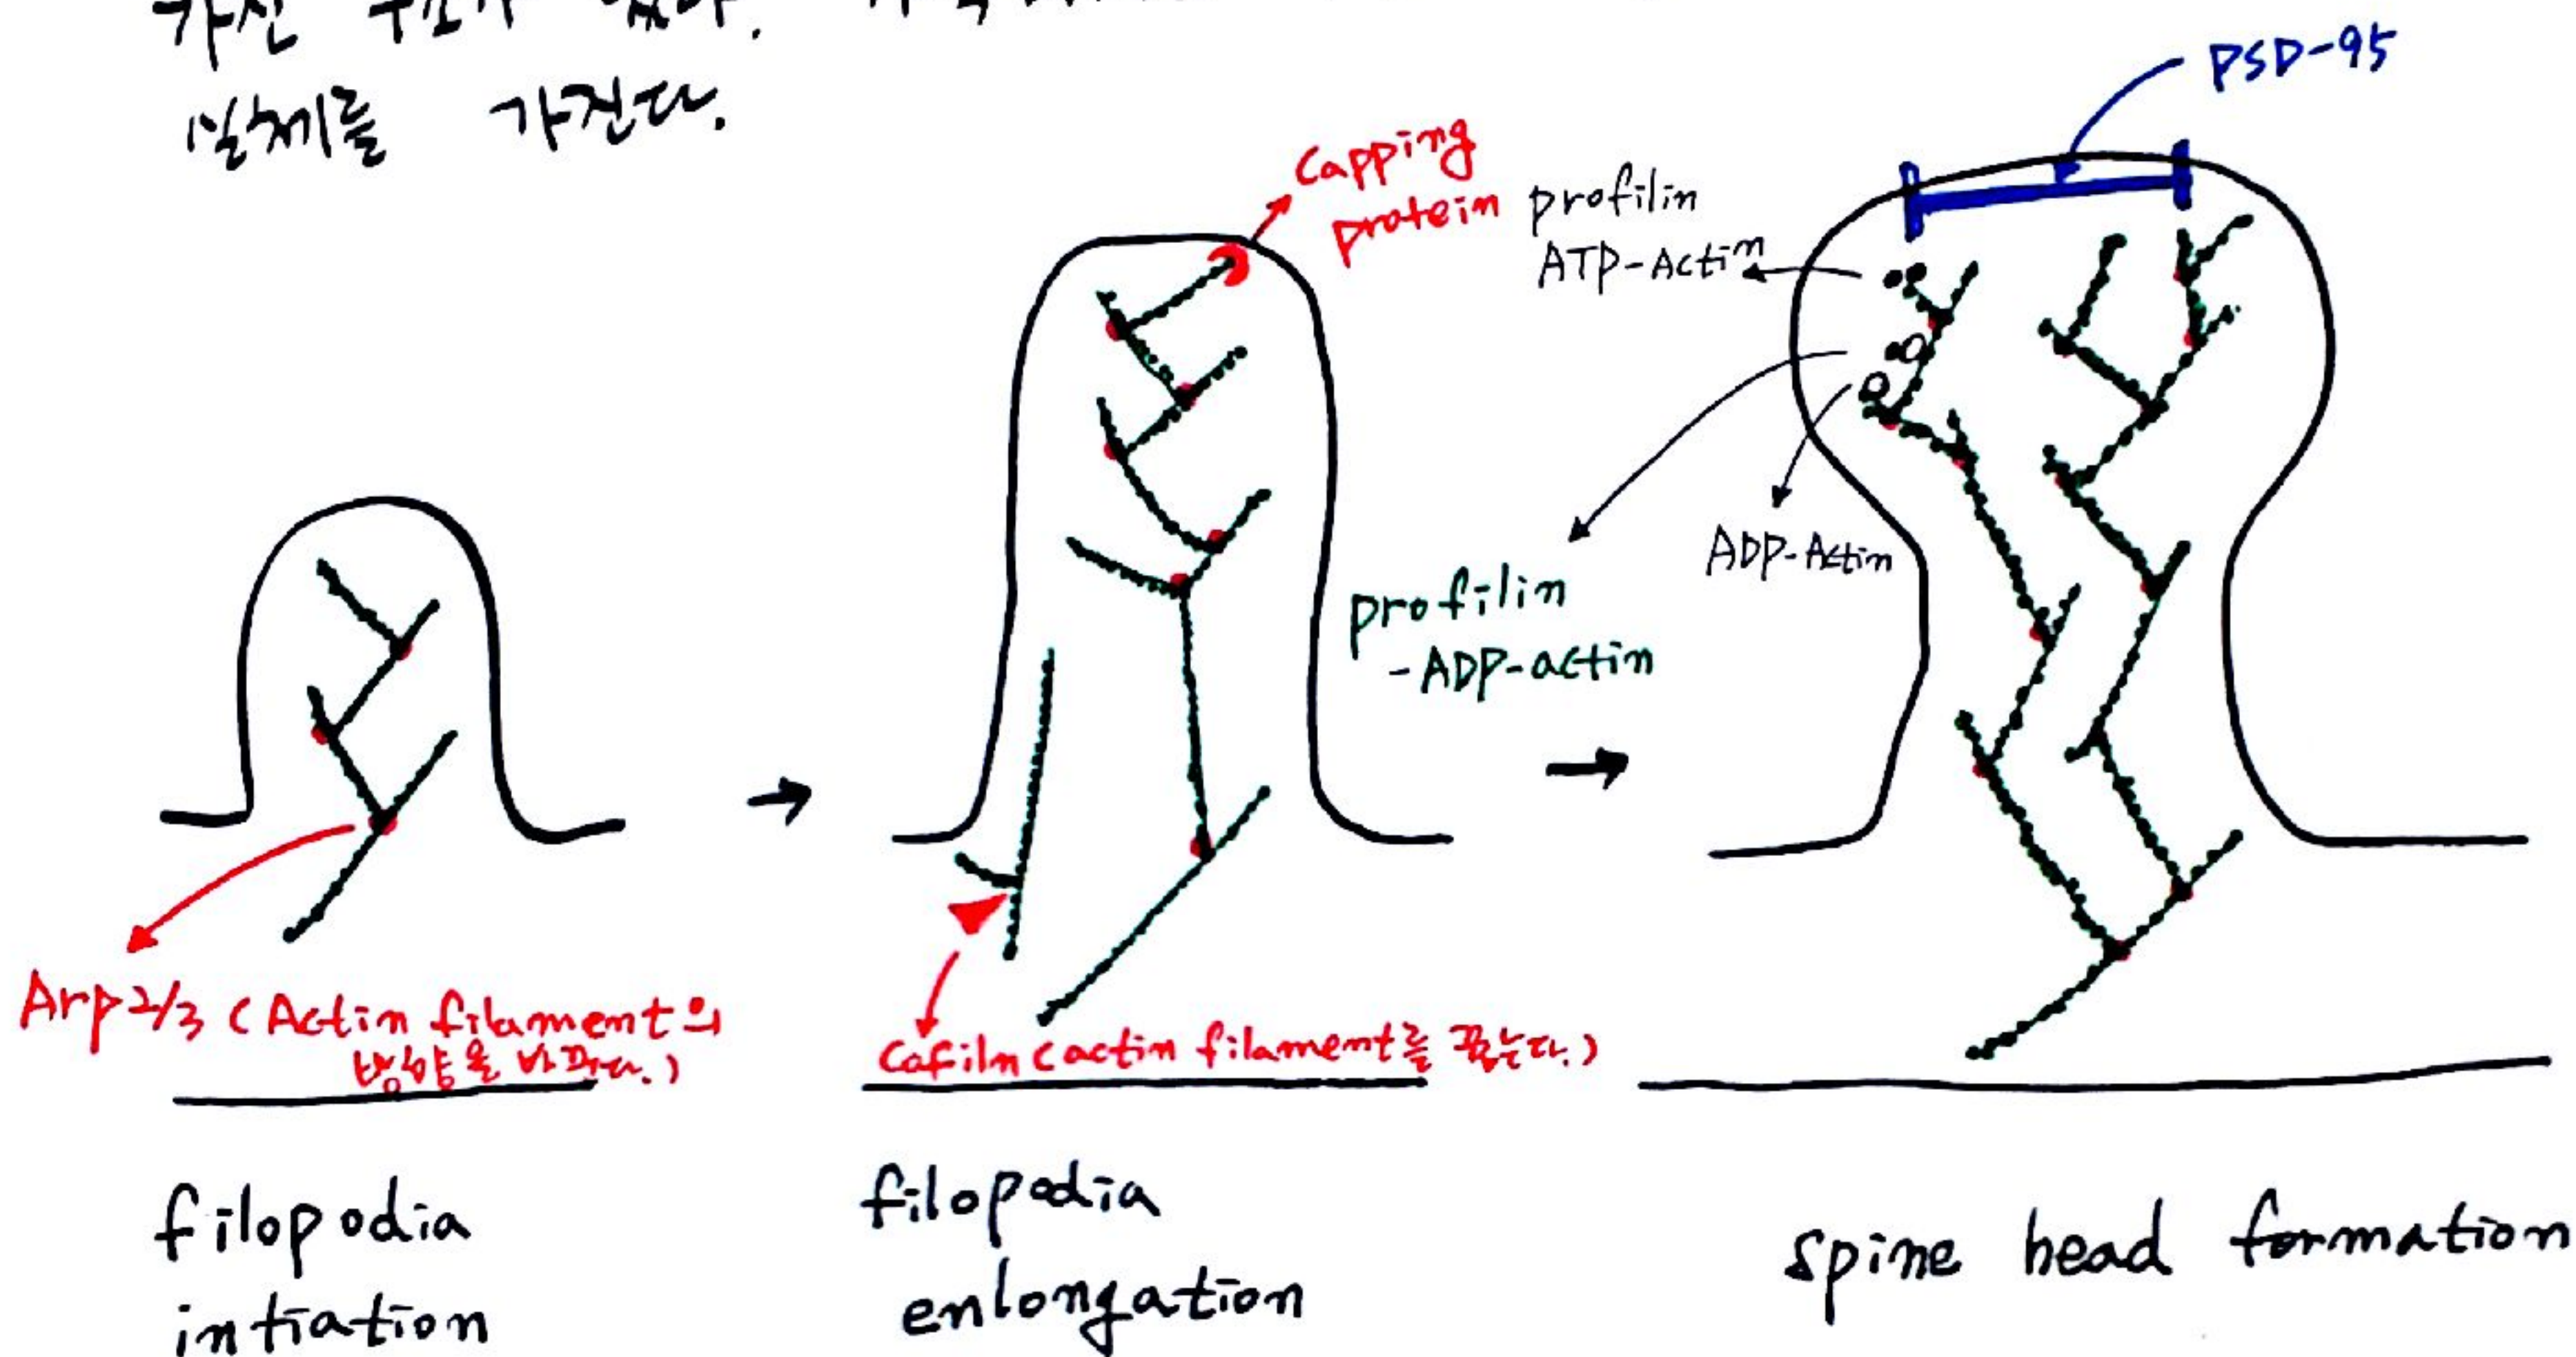 가진
일체를 가진다.
PSD-95
Capping
protein
profilin
ATP-Actin
ADP-Actin
profilin
-ADP-actin
Arp2/3 (Actin filament의
방향을 바꾼다.)
Cofiln (actin filament를 끊는다.)
filopodia
intiation
filopodia
enlongation
spine head formation